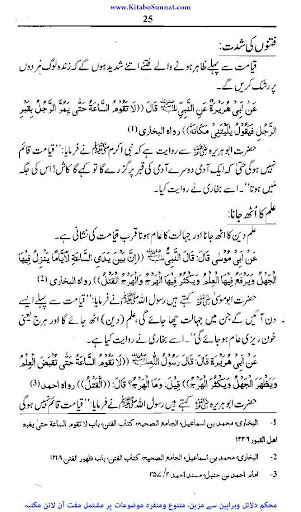 www.KitaboSunnat.com
25
فتنوں کی شدت:
قیامت سے پہلے ظاہر ہونے والے فتنے اتنے شدید ہوں گے کہ زندہ لوگ مُردوں
پر رشک کریں گے۔
عَنْ اَبِی هُرَیْرَةَ عَنِ النَّبِیِّ ﷺ قَالَ ((لَا تَقُوْمُ السَّاعَةُ حَتّٰی یَمُرَّ الرَّجُلُ بِقَبْرِ
الرَّجُلِ فَیَقُوْلُ یٰلَیْتَنِیْ مَكَانَهُ)) رواه البخاری (1)
حضرت ابوہریرہ ؓ سے روایت ہے کہ نبی اکرم ﷺ نے فرمایا: ”قیامت قائم
نہیں ہوگی حتیٰ کہ ایک آدمی دوسرے آدمی کی قبر پر گزرے گا تو کہے گا کاش! اس کی جگہ
میں ہوتا“۔ اسے بخاری نے روایت کیا۔
علم کا اُٹھ جانا:
علمِ دین کا اٹھ جانا اور جہالت کا عام ہونا قرب قیامت کی نشانی ہے۔
عَنْ اَبِی مُوْسٰی قَالَ: قَالَ النَّبِیُّ ﷺ ((اِنَّ بَیْنَ یَدَیِ السَّاعَةِ لَاَیَّامًا یَنْزِلُ فِیْهَا
الْجَهْلُ وَیُرْفَعُ فِیْهَا الْعِلْمُ وَیَكْثُرُ فِیْهَا الْهَرْجُ وَالْهَرْجُ الْقَتْلُ)) رواه البخاری (2)
حضرت ابوموسیٰ ؓ کہتے ہیں رسول اللہ ﷺ نے فرمایا: ”قیامت سے پہلے ایسے
دن آئیں گے جن میں جہالت چھا جائے گی، علم (دین) اٹھ جائے گا اور ہرج یعنی
خون ریزی عام ہو جائے گی“۔ اسے بخاری نے روایت کیا ہے۔
عَنْ اَبِی هُرَیْرَةَ قَالَ: قَالَ رَسُوْلُ اللّٰهِ ﷺ ((لَا تَقُوْمُ السَّاعَةُ حَتّٰی یُقْبَضَ الْعِلْمُ
وَیَظْهَرَ الْجَهْلُ وَیَكْثُرَ الْهَرْجُ)) قِیْلَ: وَمَا الْهَرْجُ؟ قَالَ: ((الْقَتْلُ)) رواه احمد (3)
حضرت ابوہریرہ ؓ کہتے ہیں رسول اللہ ﷺ نے فرمایا: ”قیامت قائم نہیں ہوگی
1- البخاری، محمد بن اسماعیل، الجامع الصحیح: کتاب الفتن، باب لا تقوم الساعة حتی یغبط
اهل القبور
2- البخاری، محمد بن اسماعیل، الجامع الصحیح، کتاب الفتن، باب ظهور الفتن
3- امام احمد بن حنبل، مسند احمد
محکم دلائل وبراہین سے مزین، متنوع ومنفرد موضوعات پر مشتمل مفت آن لائن مکتبہ